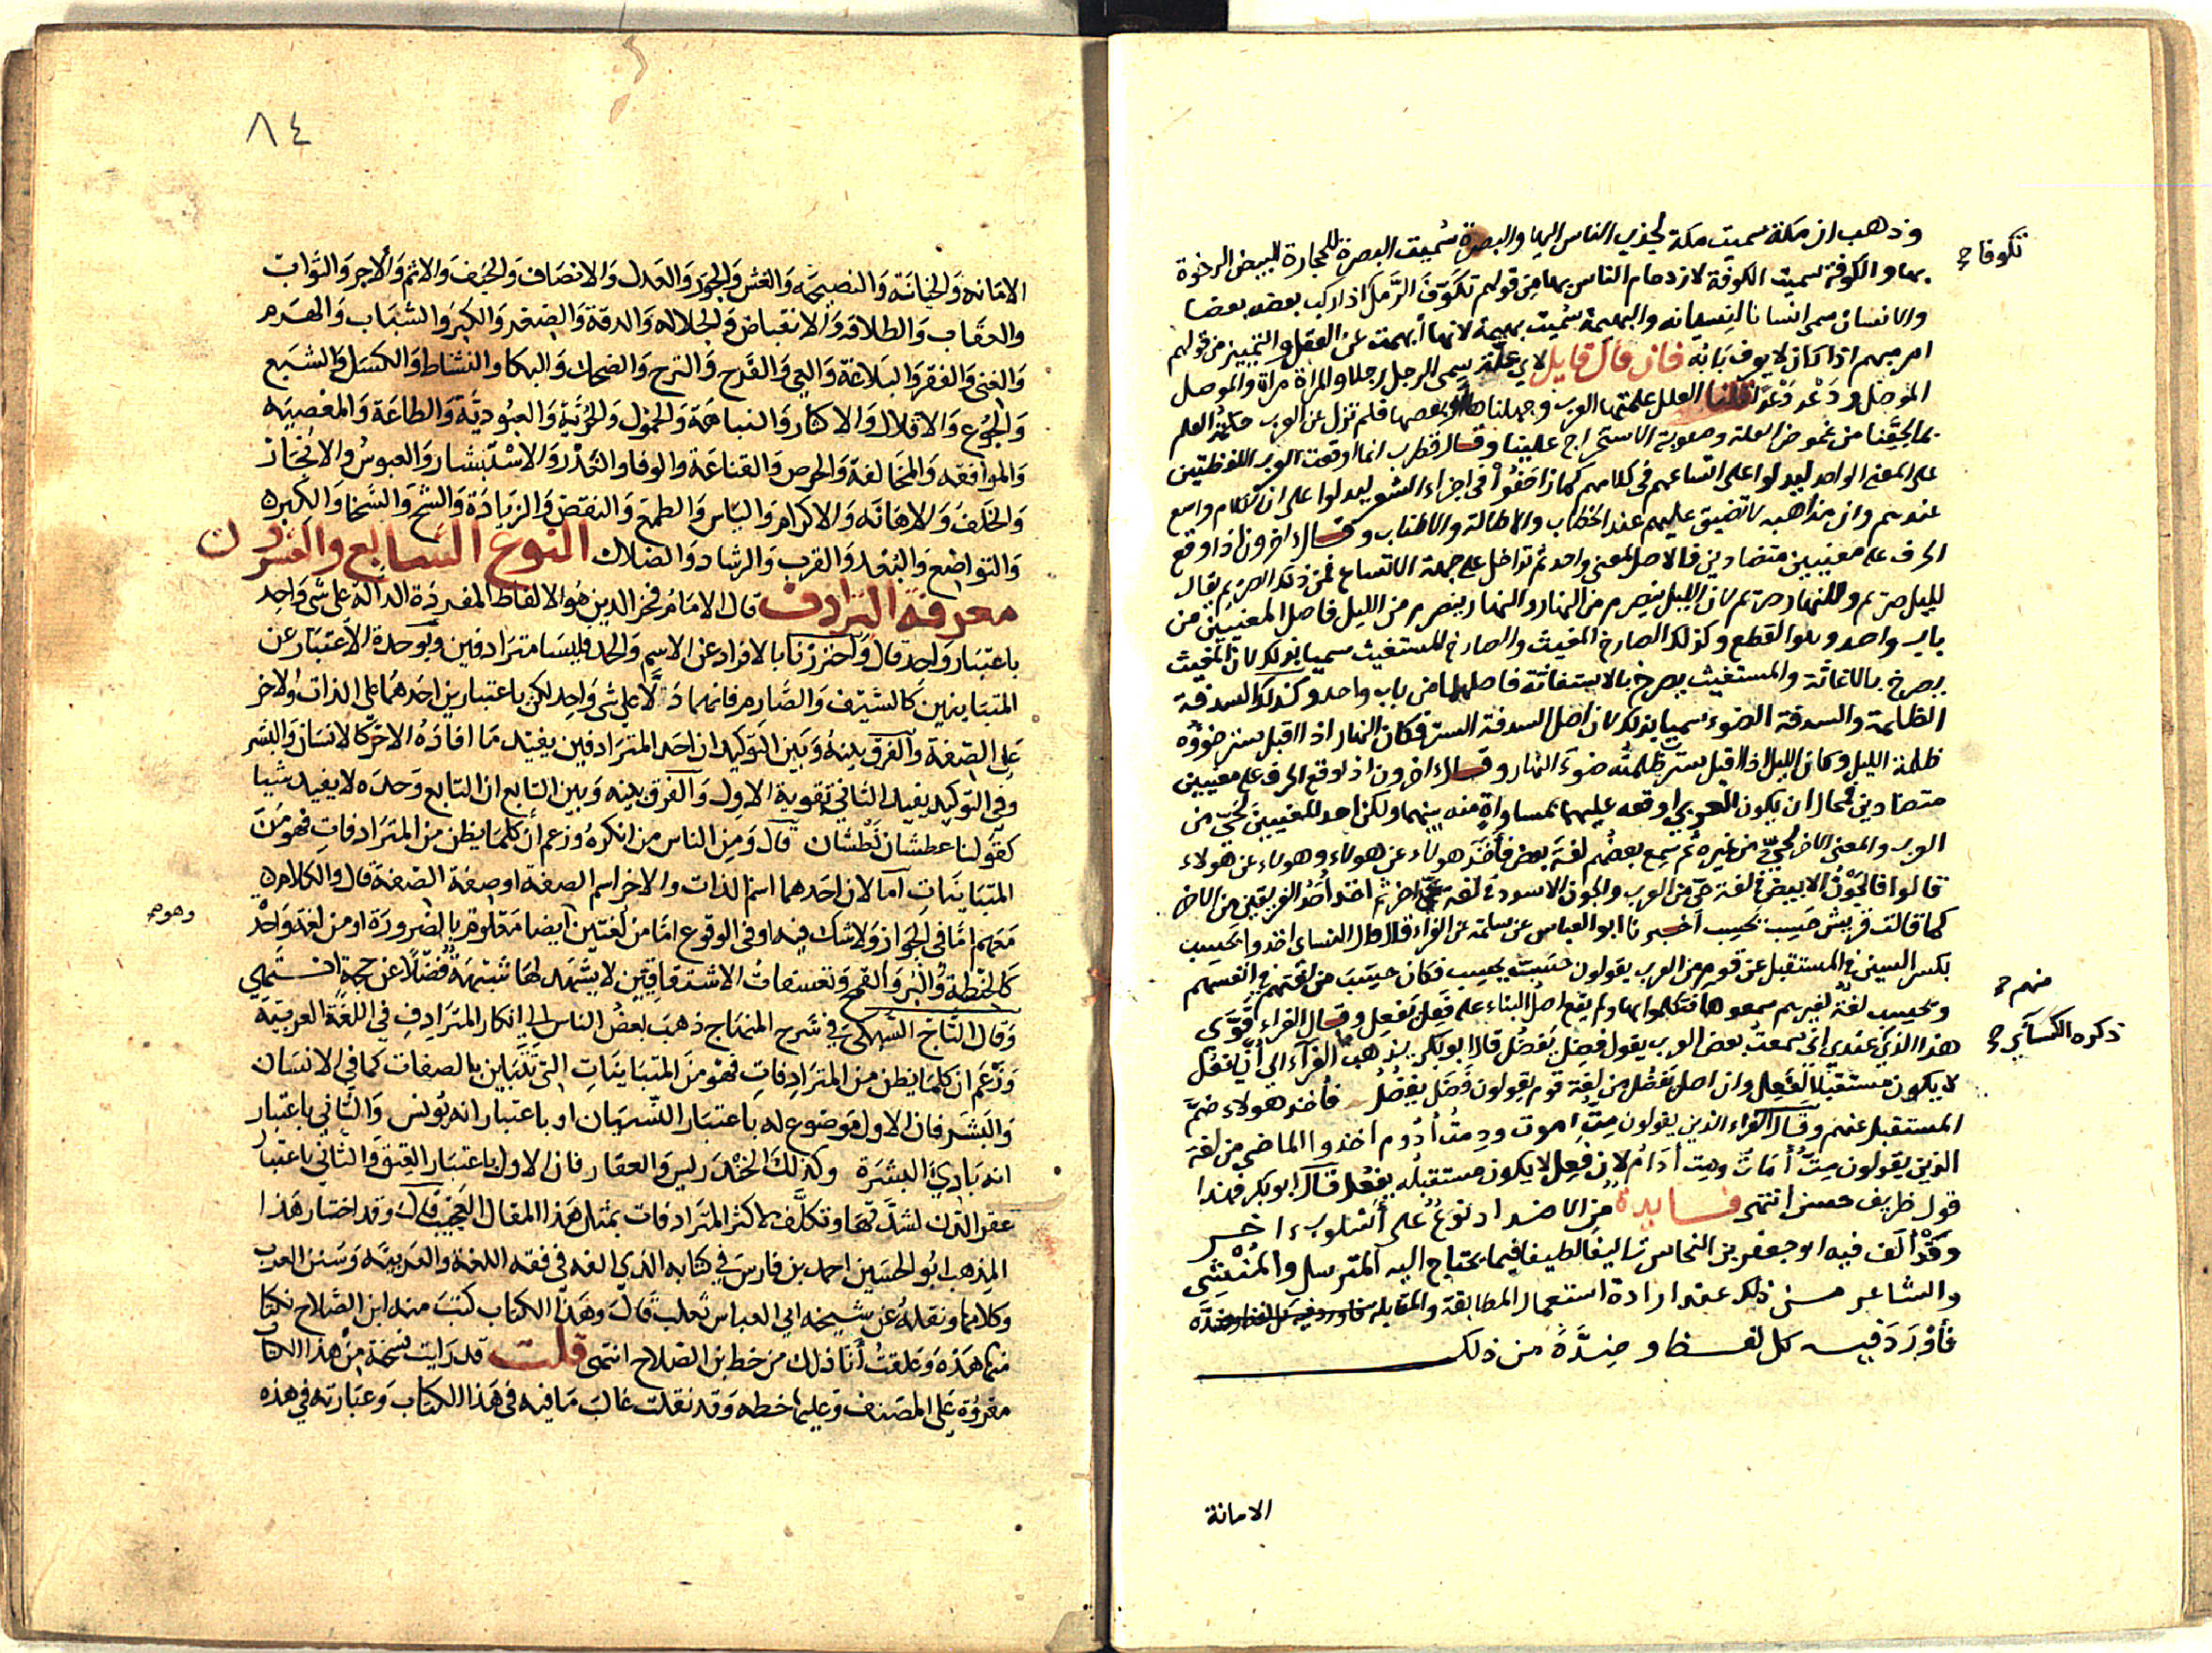 وذهب ان مكة سميت مكة لجذب الناس اليها والبصرة سُميت البصرة للحجارة البيض الرخوة
بها والكوفة سميت الكوفة لازدحام الناس بها من قولهم تكَوَّفَ الرَّمل اذا ركب بعضه بعضا
تكوفا صح
والانسان سمى انسانا لنسيانه والبهيمة سُميت بهيمة لانها ابهمت عن العقل والتمييز من قولهم
امر مبهم اذا كان لا يعرف بابه فان قال قايل لاي علة سمى الرجل رجلا والمراة مراة والموصل
الموصل ودَعْد دَعْدًا قلنا العلل علمتها العرب وجهلناها او بعضها فلم تزل عن العرب حكمة العلم
بما لحقنا من غموض العلة وصعوبة الاستخراج علينا وقال قطرب انما اوقعت العرب اللفظتين
على المعنى الواحد ليدلوا على اتساعهم في كلامهم كما زاحَفُوا في اجزاء الشعر ليدلوا على ان الكلام واسع
عندهم وان مذاهبه لا تضيق عليهم عند الخطاب والاطالة والاطناب وقال اخرون اذا وقع
الحرف على معنيين متضادين فالاصل لمعنى واحد ثم تداخل على جهة الاتساع فمن ذلك الصريم يقال
لليل صريم وللنهار صريم لان الليل ينصرم من النهار والنهار ينصرم من الليل فاصل المعنيين من
باب واحد وهو القطع وكذلك الصارخ المغيث والصارخ المستغيث سميا بذلك لان المغيث
يصرخ بالاغاثة والمستغيث يصرخ بالاستغاثة فاصلهما من باب واحد وكذلك السدفة
الظلمة والسدفة الضوء سميا بذلك لان اصل السدفة الستر فكان النهار اذا اقبل ستر ضوؤه
ظلمة الليل وكان الليل اذا اقبل سترت ظلمته ضوء النهار وقال اخرون اذا وقع الحرف على معنيين
متضادين فمحال ان يكون العربي اوقعه عليهما بمساواةٍ منه بينهما ولكن احد المعنيين لحَيّ من
العرب والمعنى الاخر لحيٍّ من غيره ثم سمع بعضهم لغة بعض فاخَذَ هولاء عن هولاء وهولاء عن هولاء
قالوا فالجَوْنُ الابيض في لغة حيّ من العرب والجون الاسود في لغة حي اخر ثم اخذ احَدُ الفريقين من الاخر
كما قالت قريش حَسِبَ يَحسِب أخبرنا ابو العباس عن سلمة عن الفراء قال قال الكساى اخذوا يَحسِب
بكسر السين في المستقبل عن قوم من العرب يقولون حسَبَ يحسِب فكان حسِبَ من لغتهم في انفسهم
ويحسِب لغةً لغيرهم سمعوها فتكلموا بها ولم يقع اصل البناء على فَعِلَ يَفعِل وقال الفراء قَوَّى
منهم صح
هذا الذي عندي اني سمعتُ بعض العرب يقول فضِل يَفضُل قال ابو بكر يذهب الفراء الى أن يَفعُل
ذكره الكسائي صح
لا يكون مستقبلا لفَعِل وان اصل يفضُل من لغة قوم يقولون فَضَل يفضُل فأخذ هولاء ضمَّ
المستقبل عنهم وقال الفراء الذين يقولون مِتُّ اموت ودِمتُ أدُوم اخذوا الماضي من لغة
الذين يقولون مِتُّ أُمَاتُ ودِمت أَدَامُ لان فعِل لا يكون مستقبله يفعُل قال ابو بكر فهذا
قول ظريف حسن انتهى فايدة من الاضداد نوعٌ على أُسْلوب اخر
وقد ألف فيه ابو جعفر بن النحاس تاليفا لطيفا فيما يحتاج اليه المترسل والمُنشِي
والشاعر حسن ذلك عند ارادة استعمال المطابقة والمقابلة
فأوْرَدَ فيه كل لفظ وضِدَّهُ من ذلك
الامانة
٨٤
الامانه وَالخيَانَة وَالنصيحَه وَالغش وَالجَور وَالعَدل وَالانصَاف وَالحَيف وَالاثم وَالأجر وَالثواب
والعقَاب وَالطلاقه وَالانقباض وَالجلاله وَالدقة وَالصغر وَالكِبَر وَالشبَاب وَالهَرم
وَالغنى وَالفقر وَالبَلاغة وَالعي وَالفَرح وَالترح وَالضحك وَالبكا والنشاط وَالكسَل وَالشبَع
وَالجُوع وَالاقلال وَالاكثار وَالنباهَة وَالخمول وَالحُرّيَّة وَالعبُوديَّة وَالطاعَة وَالمعْصيَه
وَالموافقه وَالمخَالفة وَالحرص وَالقناعَة والوفا والغَدْر وَالاسْتبْشار وَالعبوسُ والانجَاز
وَالخلفَ وَالاهَانَه وَالاكرام وَاليَاس وَالطمع وَالنقصَ وَالزيَادَة وَالشح وَالسَّخا وَالكِبر
وَالتواضع وَالبُعْد وَالقرب وَالرشاد وَالضلال النوع السابع والعشرون
معرفة الترادف قال الامَامُ فخر الدين هُو الالفاظ المفردَة الدالة عَلى شى وَاحِد
باعتبَار وَاحد قال وَاحترزنا بالافراد عن الاسم وَالحد فليسَا مترَادفين وَبوَحدة الاعتبَار عن
المتبَاينين كالسَّيْف وَالصَّارم فانهما دَلَّا عَلى شى وَاحِد لكن باعتبارين احَدهُما على الذات والاخر
عَلى الصّفة والفرق بينهُ وَبَين التوكيد ان احَد المترَادفين يفيْد مَا افادَهُ الاخرُ كالانسَان وَالبشر
وفي التوكيد يفيد الثاني تقوية الاول وَالفرق بينه وَبين التابع ان التابع وَحدَه لا يفيد شيا
كقولنا عطشان نَطْشان قال وَمِن الناس من انكره وَزعم أن كلمَا يظن من المترَادفاتِ فهو مَنَ
المتبَاينَاتِ اما لان احَدهما اسمُ الذات والاخر اسم الصفة او صفة الصّفة قال والكلام
مَعهم امَّا في الجَوَاز وَلا شك فيه او في الوقوع امّا من لغتين ايضا مَعْلوم بالضرورَة او من لغة وَاحدة
وهو صح
كَالحنْطةُ وُالبُر وَالقمح وتعسفاتُ الاشتقاقيّين لا يشهَد لهَا شبْهَةٌ فُضْلًا عن حجةٍ انتهى
وَقال التَّاج السُّبكىّ في شرح المنهَاج ذهبَ بعضُ الناس الى انكار المترَادِفِ في اللغَة العربيّة
وَزعَم ان كلمَا يظن من المترَادِفات فهْو منَ المتبَاينَاتِ التي تَتَبَاين بالصفات كما في الانسَان
وَالبَشَر فان الاول مَوضوع له بَاعتبَار النِّسيَان او باعتبار انه يُونس وَالثّاني باعتبار
انه بَادي البَشَرَة وكذلكَ الخنْدَرِيس وَالعقار فان الاول باعتبَار العتق وَالثاني باعتبار
عقر الدّن لشدّتهَا وتكلَّف لاكثر المترَادفات بمثل هَذا المقال العَجيْب قالَ وقد اختار هَذا
المذهبَ ابُو الحُسَين احمد بن فارسَ في كتابه الذي الفه في فقه اللغة والعَربيَّة وَسَنَن العرَب
وكلامهَا ونقلهُ عن شيخه ابي العباس ثعلب قالَ وهَذا الكتاب كتبَ منه ابن الصَّلاح نكتا
منها هَذه وَعلقتُ أنَا ذلك من خط ابن الصّلاح انتهى قلت قد رَايت نسخة من هذا الكتاب
مقروْة عَلى المصَنف وَعليها خطه وَقد نقلت غالبَ مَا فيه في هَذا الكتاب وَعبَارته في هذه